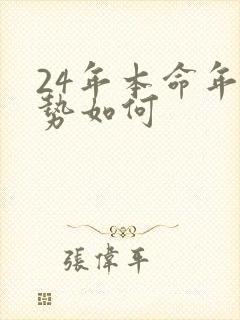 24年本命年
势如何
張偉平